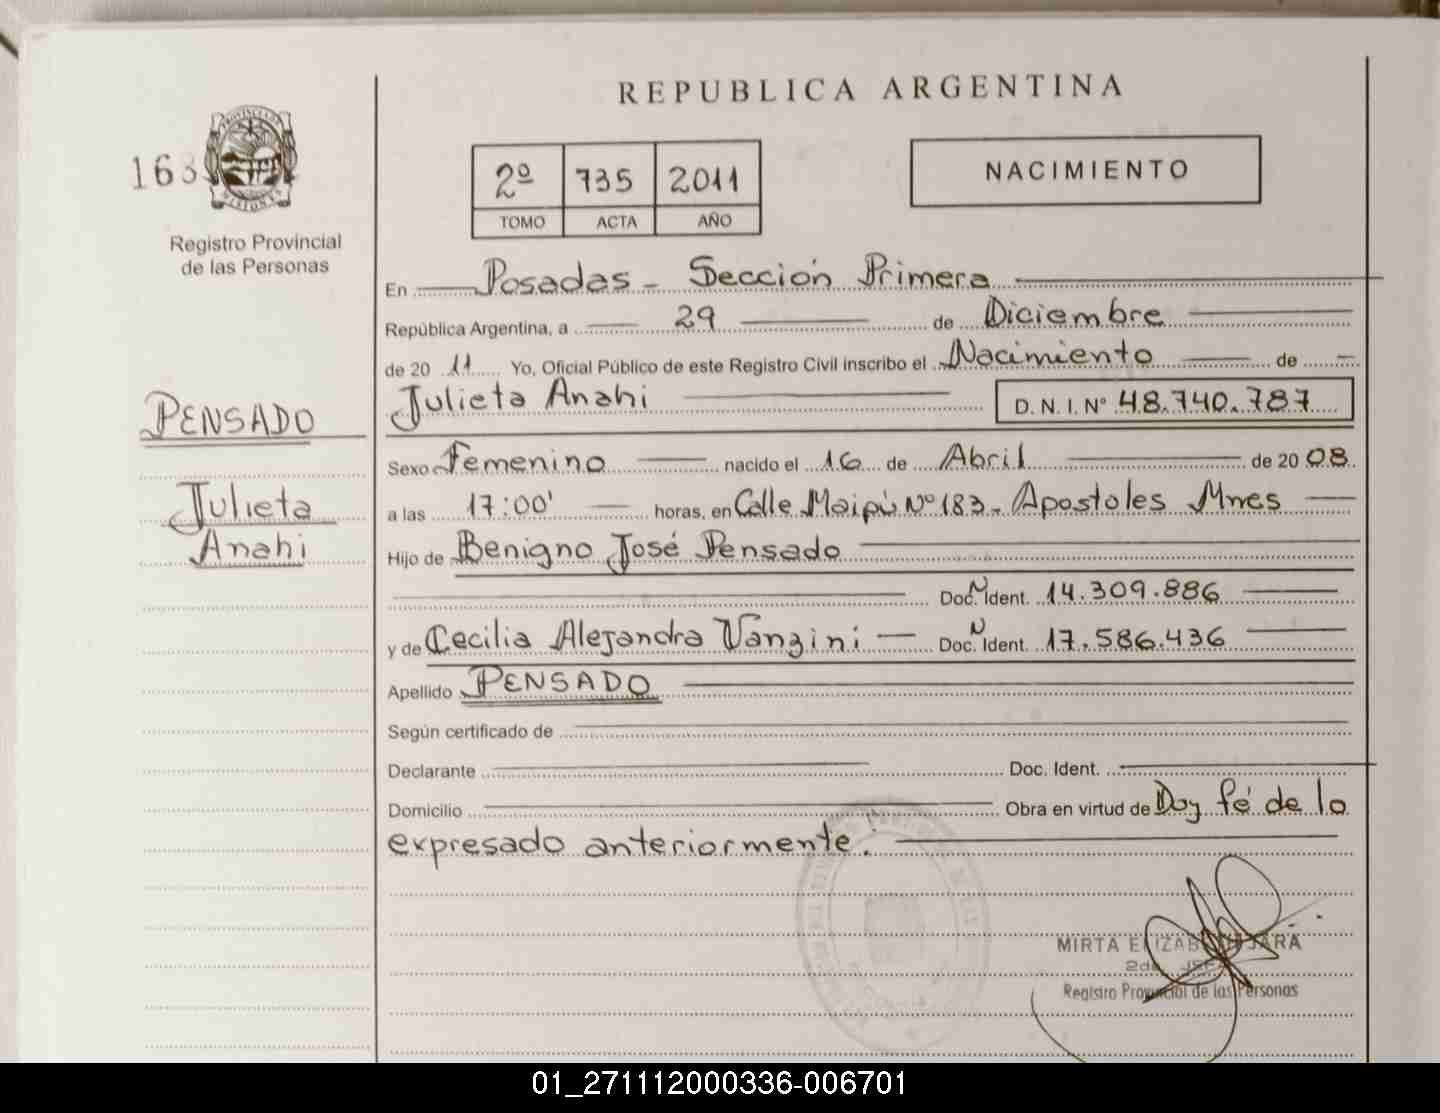 REPUBLICA ARGENTINA
163
PROVINCIA DE MISIONES
Registro Provincial
de las Personas
2º 735 2011
TOMO ACTA AÑO
NACIMIENTO
En Posadas - Sección Primera
República Argentina, a 29 de Diciembre
de 20 11 Yo, Oficial Público de este Registro Civil inscribo el Nacimiento de
Julieta Anahi D. N. I. Nº 48.740.787
PENSADO
Julieta
Anahi
Sexo Femenino nacido el 16 de Abril de 20 08
a las 17:00' horas, en Calle Maipú Nº 183 - Apostoles Mnes
Hijo de Benigno José Pensado
Doc. N Ident. 14.309.886
y de Cecilia Alejandra Vanzini Doc. N Ident. 17.586.436
Apellido PENSADO
Según certificado de
Declarante Doc. Ident.
Domicilio Obra en virtud de Doy fé de lo
expresado anteriormente.
MIRTA ELIZAB JARA
2da JEFA
Registro Provincial de las Personas
01_271112000336-006701